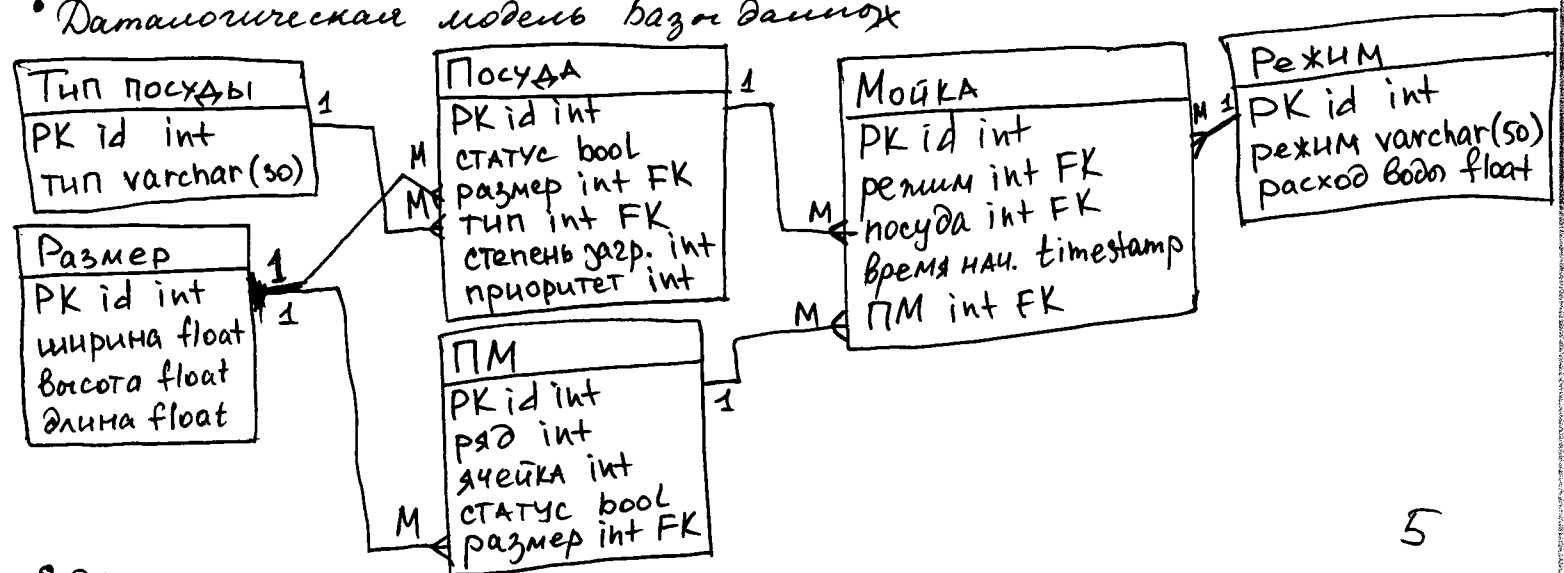 • Даталогическая модель базы данных
Тип посуды
PK id int
тип varchar(30)
1
Размер
PK id int
ширина float
высота float
длина float
1
1
Посуда
PK id int
статус bool
размер int FK
тип int FK
степень загр. int
приоритет int
M
M
1
ПМ
PK id int
ряд int
ячейка int
статус bool
размер int FK
M
1
Мойка
PK id int
режим int FK
посуда int FK
время нач. timestamp
ПМ int FK
M
M
M
1
Режим
PK id int
режим varchar(50)
расход воды float
5